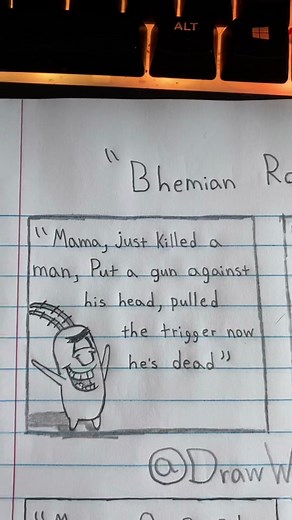 ALT
"Bhemian Ro
"Mama, just killed a
man, Put a gun against
his head, pulled
the trigger now
he's dead"
@DrawW
"M